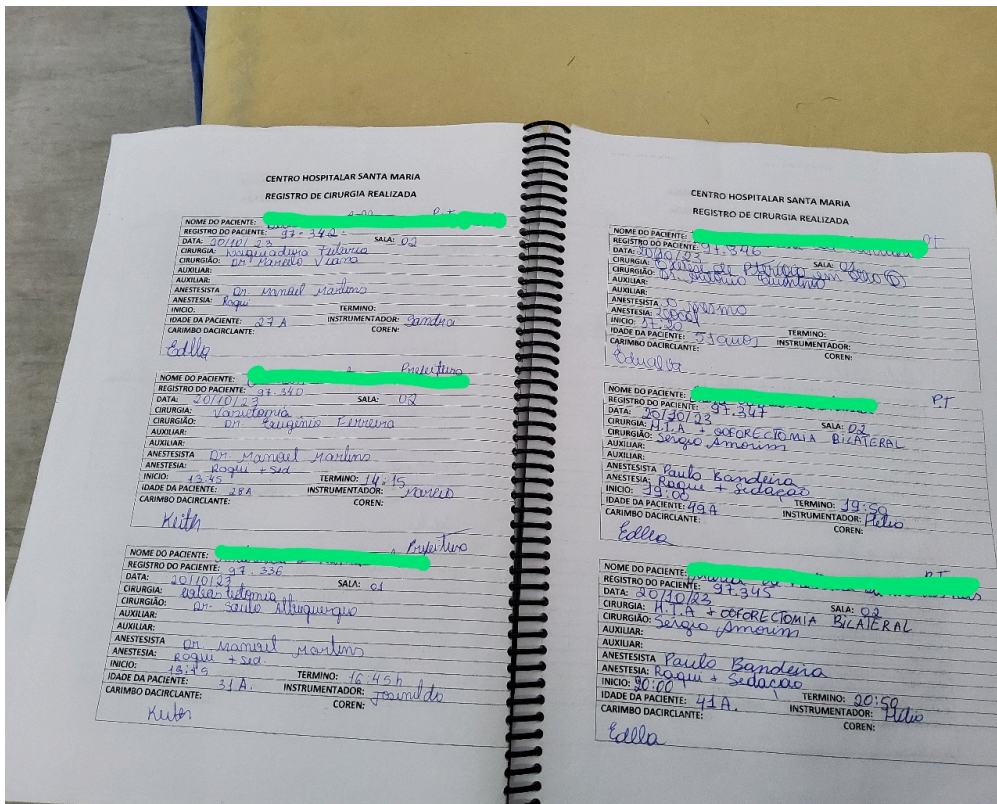 CENTRO HOSPITALAR SANTA MARIA
REGISTRO DE CIRURGIA REALIZADA
NOME DO PACIENTE: P.T
REGISTRO DO PACIENTE: 97.342
DATA: 20/10/23 SALA: 02
CIRURGIA: Laqueadura Tubária
CIRURGIÃO: Dr Marcelo Viana
AUXILIAR:
AUXILIAR:
ANESTESISTA Dr. Manoel Martins
ANESTESIA: Raqui
INICIO: TERMINO:
IDADE DA PACIENTE: 27 A INSTRUMENTADOR: Sandra
CARIMBO DACIRCLANTE: COREN:
Edlla
NOME DO PACIENTE: Prefeitura
REGISTRO DO PACIENTE: 97.340
DATA: 20/10/23 SALA: 02
CIRURGIA:
CIRURGIÃO: Dr. Eugênio Ferreira
AUXILIAR:
AUXILIAR:
ANESTESISTA Dr. Manoel Martins
ANESTESIA: Raqui + Sed
INICIO: 13:45 TERMINO: 14:15
IDADE DA PACIENTE: 28A INSTRUMENTADOR:
CARIMBO DACIRCLANTE: COREN:
Keith
NOME DO PACIENTE: Prefeitura
REGISTRO DO PACIENTE: 97.336
DATA: 20/10/23 SALA: 01
CIRURGIA:
CIRURGIÃO: Dr. Saulo Albuquerque
AUXILIAR:
AUXILIAR:
ANESTESISTA Dr. Manoel Martins
ANESTESIA: Raqui + Sed.
INICIO: TERMINO: 16:45h
IDADE DA PACIENTE: 31 A. INSTRUMENTADOR: Josinildo
CARIMBO DACIRCLANTE: COREN:
Keith
CENTRO HOSPITALAR SANTA MARIA
REGISTRO DE CIRURGIA REALIZADA
NOME DO PACIENTE: PT
REGISTRO DO PACIENTE: 97.346
DATA: 20/10/23 SALA:
CIRURGIA: de Pterígio em
CIRURGIÃO: Dr. Antônio
AUXILIAR:
AUXILIAR:
ANESTESISTA O mesmo
ANESTESIA:
INICIO: 17:20 TERMINO:
IDADE DA PACIENTE: anos INSTRUMENTADOR:
CARIMBO DACIRCLANTE: COREN:
Edualva
NOME DO PACIENTE: P.T
REGISTRO DO PACIENTE: 97.347
DATA: 20/10/23 SALA: 02
CIRURGIA: H.T.A + OOFORECTOMIA BILATERAL
CIRURGIÃO: Sergio Amorim
AUXILIAR:
AUXILIAR:
ANESTESISTA Paulo Bandeira
ANESTESIA: Raqui + Sedação
INICIO: 19:00 TERMINO: 19:50
IDADE DA PACIENTE: 49A INSTRUMENTADOR: Hélio
CARIMBO DACIRCLANTE: COREN:
Edlla
NOME DO PACIENTE: PT
REGISTRO DO PACIENTE: 97.345
DATA: 20/10/23 SALA: 02
CIRURGIA: H.T.A + OOFORECTOMIA BILATERAL
CIRURGIÃO: Sergio Amorim
AUXILIAR:
AUXILIAR:
ANESTESISTA Paulo Bandeira
ANESTESIA: Raqui + Sedação
INICIO: 20:00 TERMINO: 20:50
IDADE DA PACIENTE: 41A. INSTRUMENTADOR: Hélio
CARIMBO DACIRCLANTE: COREN:
Edlla